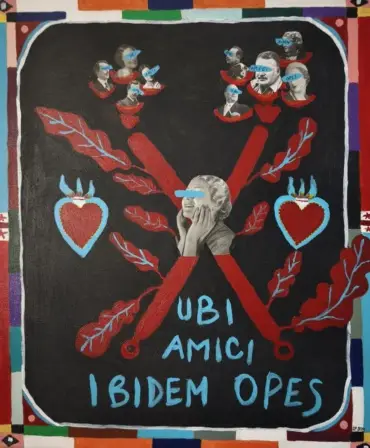 UBI
AMICI
IBIDEM OPES